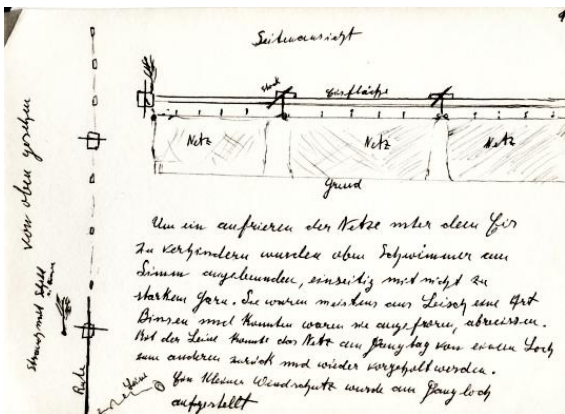 Seitenansicht
Stock
Eisfläche
Netz
Netz
Netz
Grund
von oben gesehen
Um ein aufrieren der Netze unter dem Eis
zu verhindern wurden oben Schwimmer am
Simm angebunden, einseitig mit nicht zu
starkem Garn. Sie waren meistens aus Leisch eine Art
Binsen und konnten waren sie angefroren, abreissen.
Mit der Leine konnte das Netz am Fangtag von einem Loch
zum anderen zurück und wieder vorgeholt werden.
Ein kleiner Windschutz wurde am Fangloch
aufgestellt
Rute
Leine